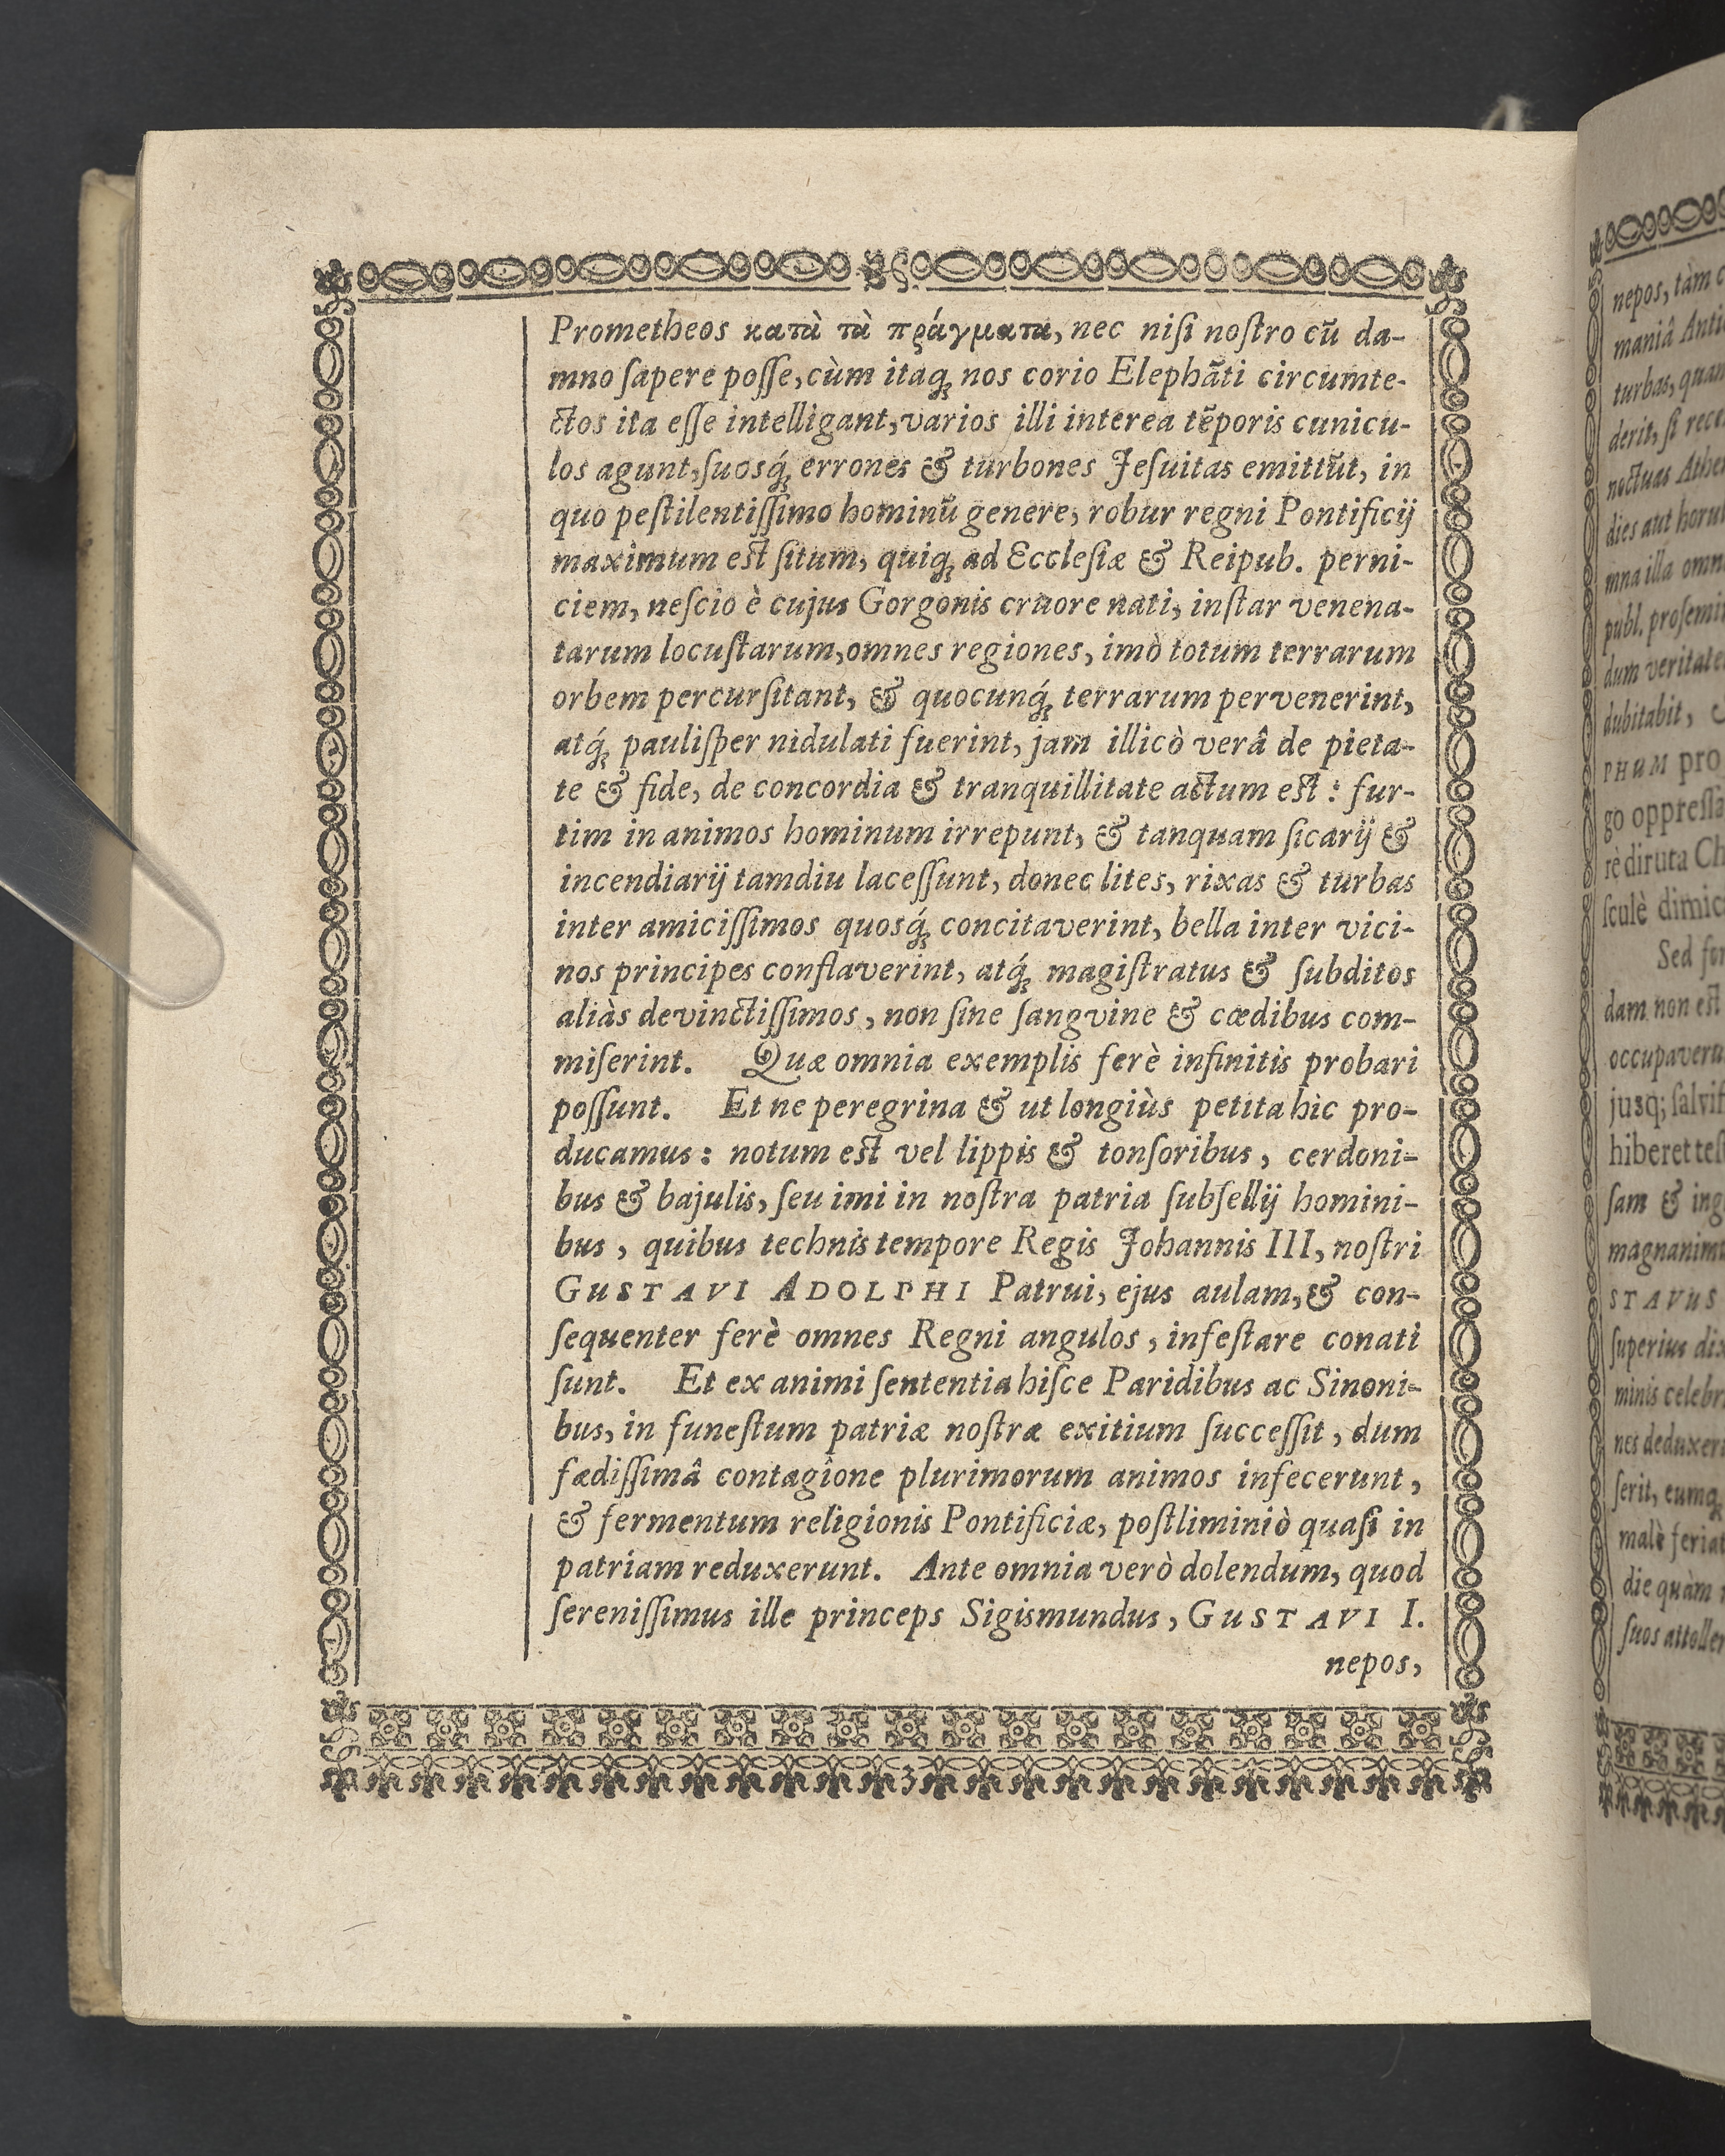 Prometheos κατὰ τὰ πράγματα, nec niſi noſtro cū da-
mno ſapere poſſe, cùm itaq́ꝫ nos corio Elephãti circumte-
ctos ita eſſe intelligant, varios illi interea tẽporis cunicu-
los agunt, ſuosq́ꝫ errones & turbones Jeſuitas emittūt, in
quo peſtilentiſſimo hominū genere, robur regni Pontificij
maximum eſt ſitum, quiqꝫ ad Eccleſiæ & Reipub. perni-
ciem, neſcio è cujus Gorgonis cruore nati, inſtar venena-
tarum locuſtarum, omnes regiones, imò totum terrarum
orbem percurſitant, & quocunq́ꝫ terrarum pervenerint,
atq́ꝫ pauliſper nidulati fuerint, jam illicò verâ de pieta-
te & fide, de concordia & tranquillitate actum eſt : fur-
tim in animos hominum irrepunt, & tanquam ſicarij &
incendiarij tamdiu laceſſunt, donec lites, rixas & turbas
inter amiciſſimos quosq́ꝫ concitaverint, bella inter vici-
nos principes conflaverint, atq́ꝫ magiſtratus & ſubditos
aliàs devinctiſſimos, non ſine ſangvine & cædibus com-
miſerint. Quæ omnia exemplis ferè infinitis probari
poſſunt. Et ne peregrina & ut longiùs petita hìc pro-
ducamus : notum eſt vel lippis & tonſoribus, cerdoni-
bus & bajulis, ſeu imi in noſtra patria ſubſellij homini-
bus, quibus technis tempore Regis Johannis III, noſtri
GUSTAVI ADOLPHI Patrui, ejus aulam, & con-
ſequenter ferè omnes Regni angulos, infeſtare conati
ſunt. Et ex animi ſententia hiſce Paridibus ac Sinoni-
bus, in funeſtum patriæ noſtræ exitium ſucceſſit, dum
fædiſſimâ contagione plurimorum animos infecerunt,
& fermentum religionis Pontificiæ, poſtliminiò quaſi in
patriam reduxerunt. Ante omnia verò dolendum, quod
ſereniſſimus ille princeps Sigismundus, GUSTAVI I.
nepos,
nepos, tàm
maniâ
turbas,
derit, ſi
noctuas
dies aut
mna illa
publ.
dum
dubitabit,
PHUM pro
go
rè diruta
ſculè
Sed
dam non eſt
occupaveru
jusq;
hiberet
ſam &
magnanim
STAVUS
ſuperius
minis
nes
ſerit,
malè
die quàm
ſuos